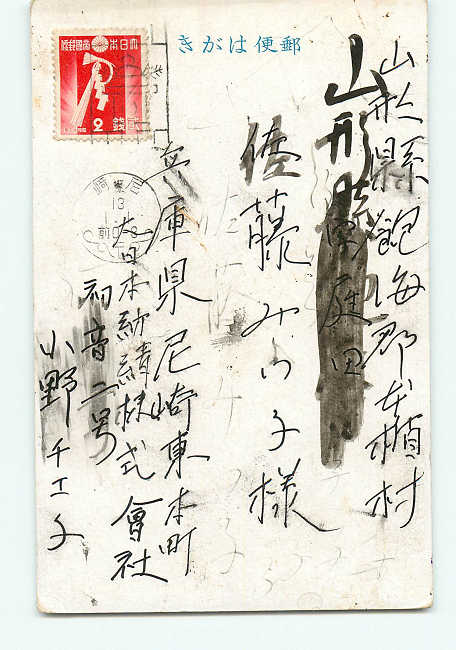 郵便はがき
山形縣飽海郡本楯村
山形縣
佐藤みつ子様
兵庫県尼崎東本町
大日本紡績株式會社
初音二号
小野チエ子
大日本帝國郵便
2
銭
尼崎
13